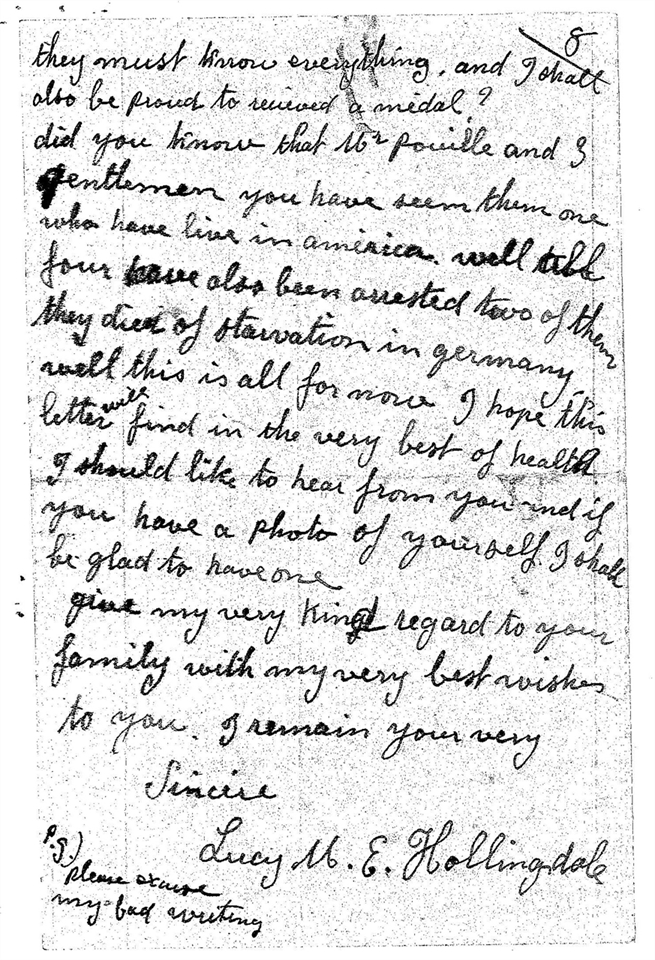 8
they must know everything, and I shall
also be proud to recieved a medal?
did you know that Mr Pouille and 3
gentlemen you have seem them one
who have live in america. well all
four have also been arrested two of them
they died of starvation in germany
well this is all for now I hope this
letter will find in the very best of health.
I should like to hear from you and if
you have a photo of yourself I shall
be glad to have one
give my very kind regard to your
family with my very best wishes
to you. I remain your very
Sincere
Lucy M. E. Hollingdale
P.S.)
please excuse
my bad writing